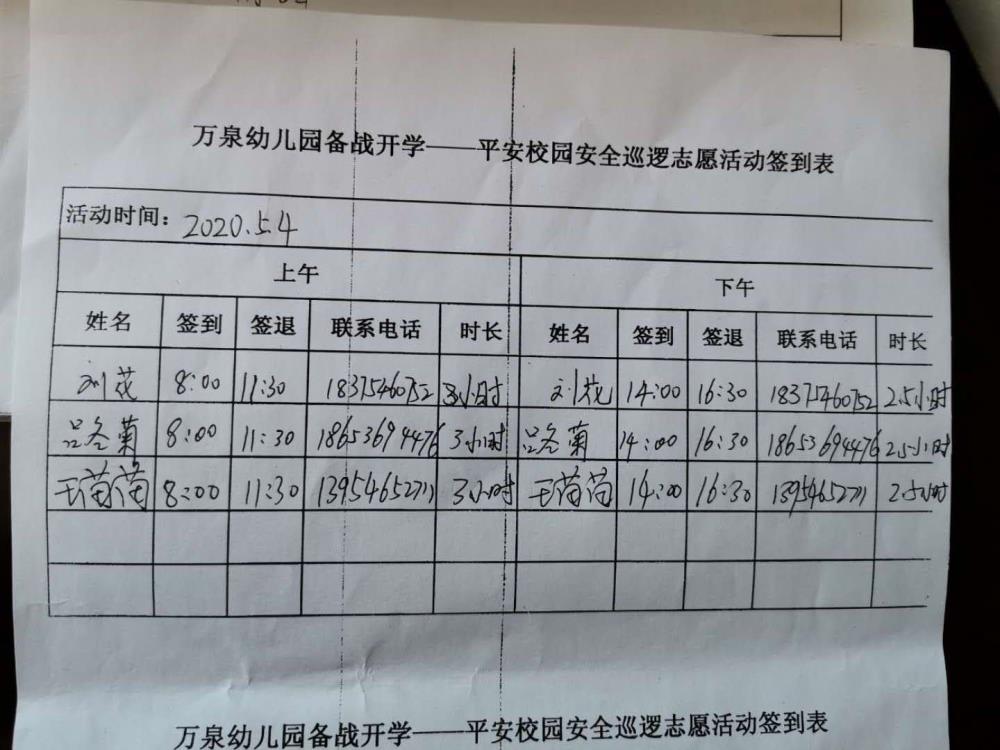 万泉幼儿园备战开学——平安校园安全巡逻志愿活动签到表
活动时间：2020.5.4
上午 下午
姓名 签到 签退 联系电话 时长 姓名 签到 签退 联系电话 时长
刘花 8:00 11:30 183715460752 3小时 刘花 14:00 16:30 183715460752 2.5小时
吕冬菊 8:00 11:30 18653694476 3小时 吕冬菊 14:00 16:30 18653694476 2.5小时
王茵茵 8:00 11:30 13954652711 3小时 王茵茵 14:00 16:30 13954652711 2.5小时
万泉幼儿园备战开学——平安校园安全巡逻志愿活动签到表